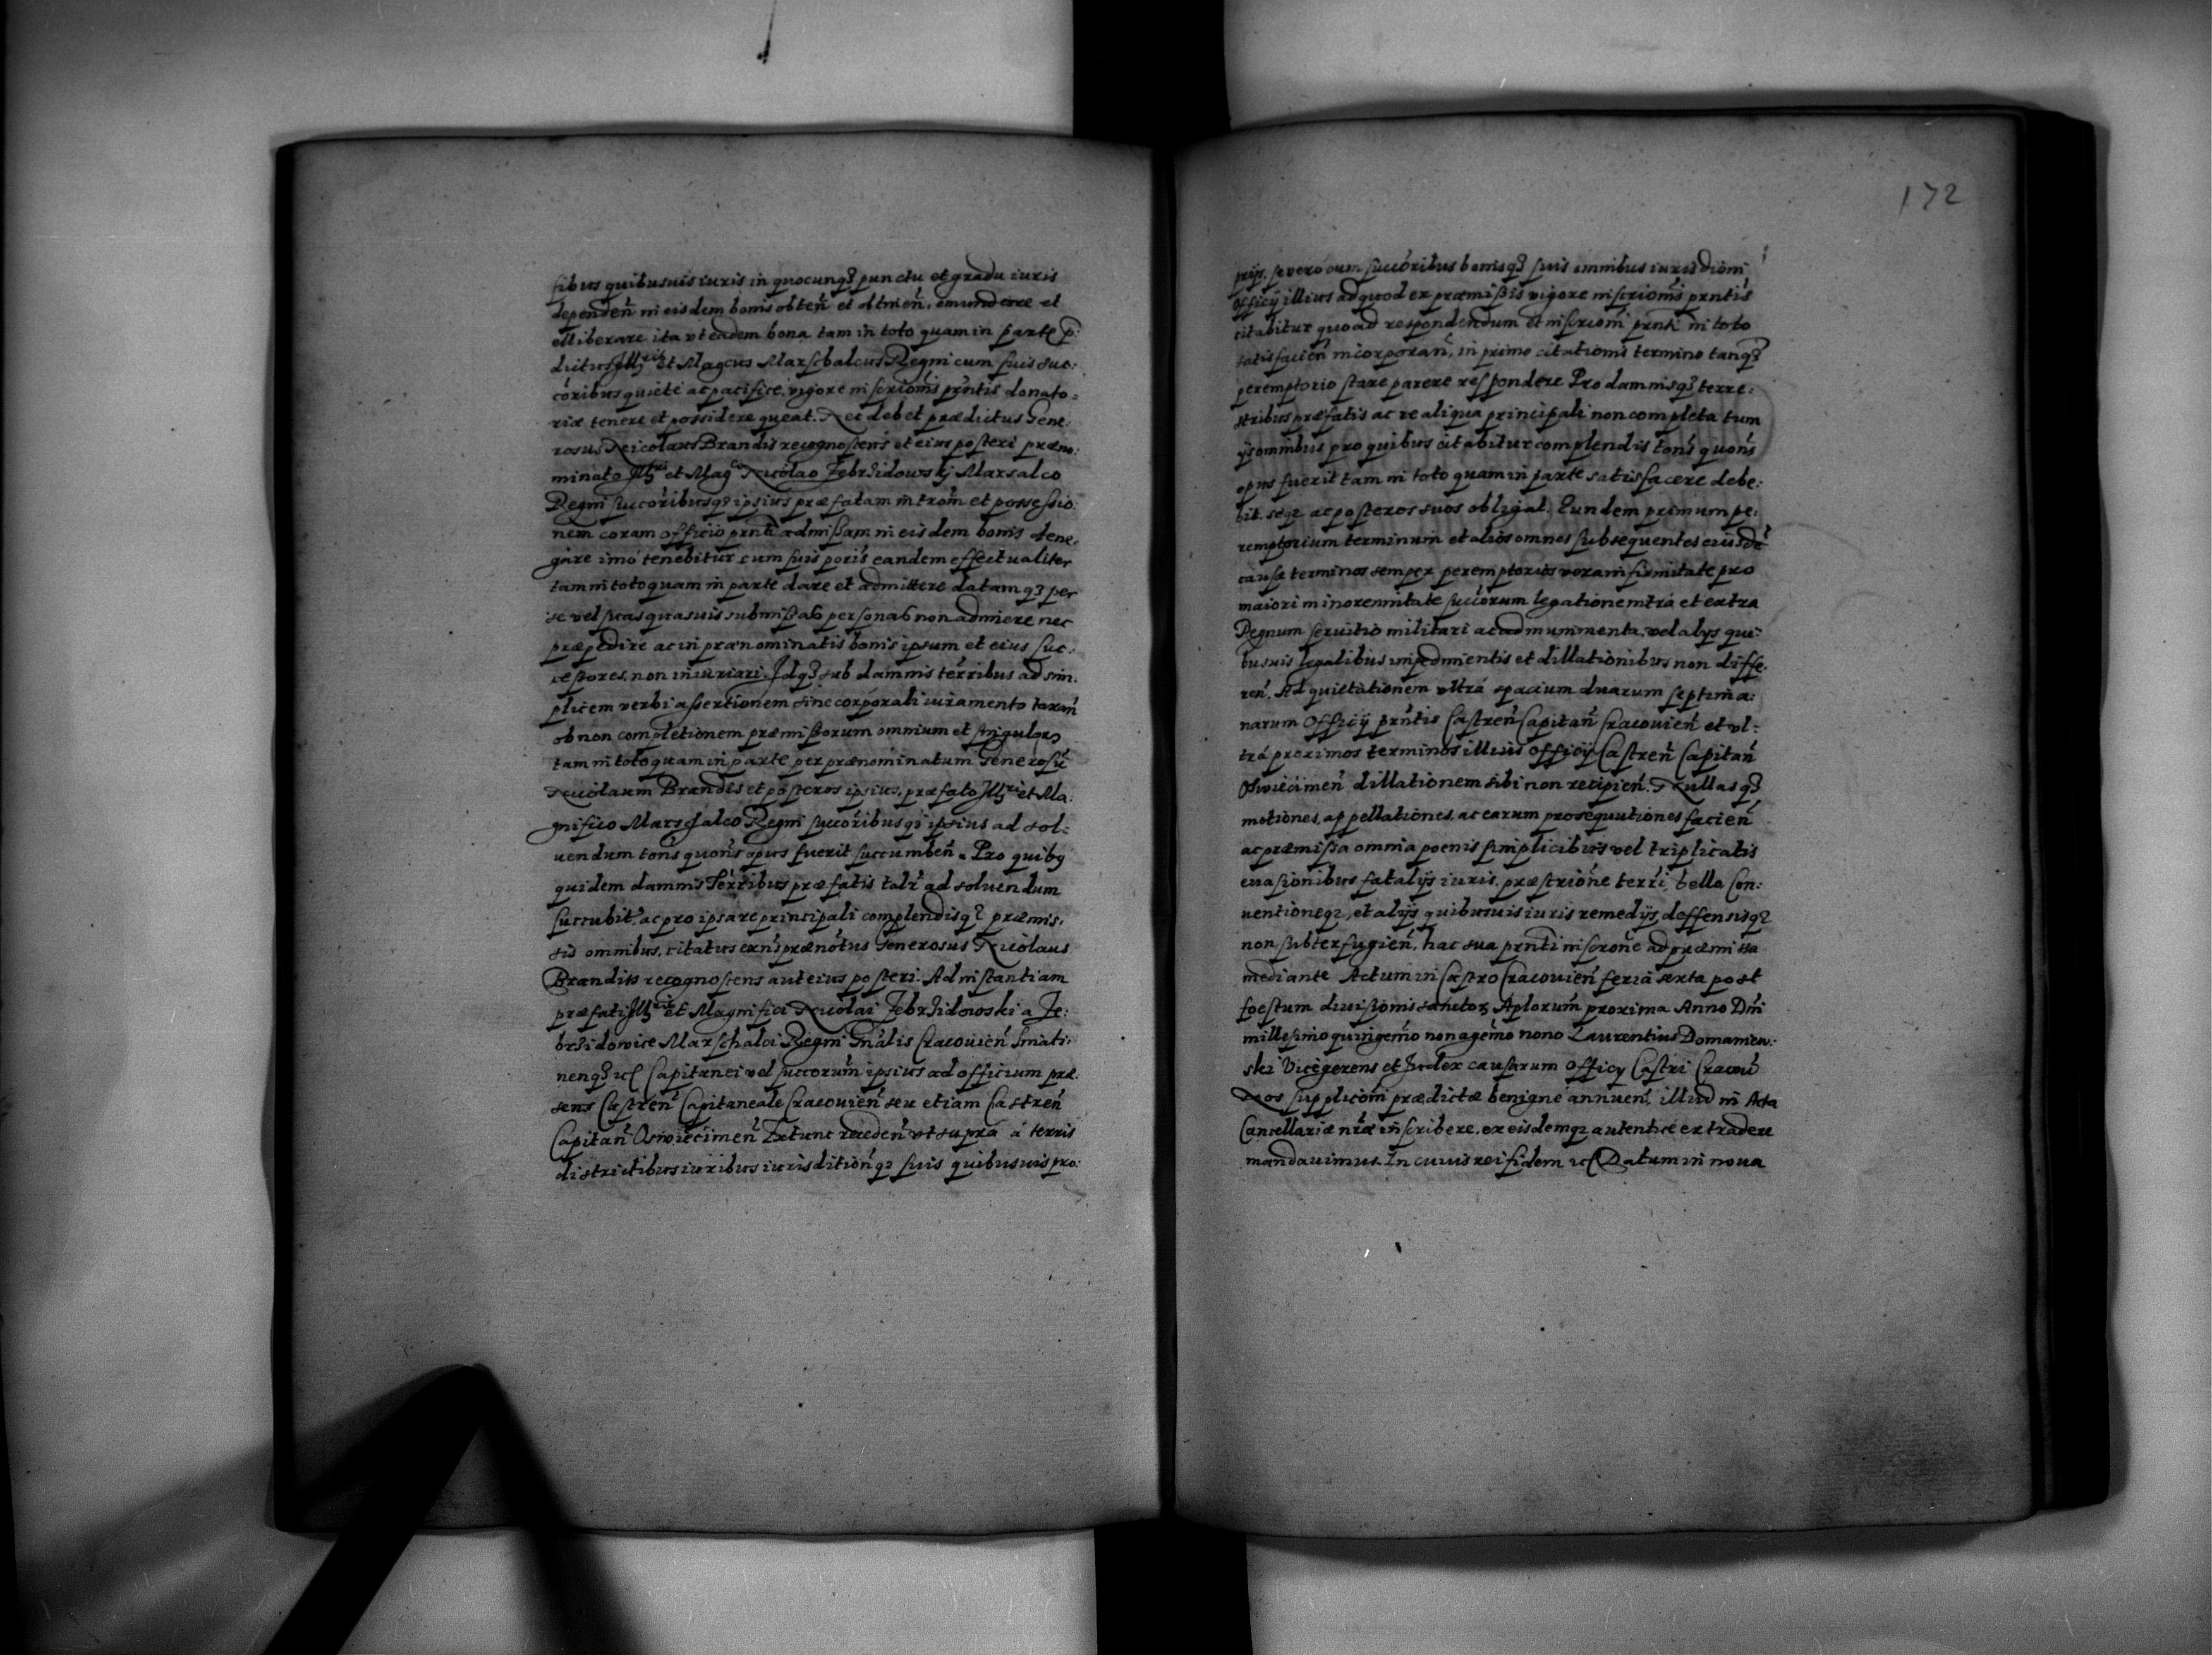 sibus quibusuis iuris in quocunq3 punctu et gradu iuris
dependen̄ in eisdem bonis obten̄ et obtinen̄, emundare et
elliberare ita vt eadem bona tam in toto quam in parte p:
dictus Illris et Magcus Marschalcus Regni cum suis suc:
cōribus quiete ac pacifice, vigore inscriōnis prn̄tis donato:
riæ tenere et possidere queat. Nec debet prædictus Gene:
rosus Nicolaus Brandis recognoscens et eius posteri præno:
minato Illri et Magco Nicolao Zebrzidowskj Marsalco
Regni succōribusq3 ipsius præfatam intrōm et possessio:
nem coram officio prn̄ti admissam in eisdem bonis dene:
gare imo tenebitur cum suis poris eandem effectualiter
tam in toto quam in parte dare et admittere datamq3 per
se vel suas quasuis submissas personas non adimere nec
præpedire ac in prænominatis bonis ipsum et eius suc:
cessores, non iniuriari. Idq3 sub damnis terribus ad sim:
plicem verbi assertionem sine corporali iuramento taxan̄
ob non completionem præmissorum omnium et singulorȝ
tam in toto quam in parte per prænominatum Generosū
Nicolaum Brandis et posteros ipsius, præfato Illri et Ma:
gnifico Marschalco Regni succōribusq3 ipsius ad sol:
uendum tons quons opus fuerit succumben̄. Pro quiby
quidem damnis Terribus præfatis talr ad soluendum
succubit. ac pro ipsa re principali complendisq3 præmis:
sis omnibus, citatus exns prænōtus Generosus Nicolaus
Brandiss recognoscens aut eius posteri. Ad instantiam
præfati Illris et Magnifici Nicolai Zebrzidowski a Ze:
brzidowice Marschalci Regni Gnālis Cracouien̄ Sniati:
nenq3 etc Capitanei vel succorum ipsius ad officium præ:
sens Castren̄ Capitaneale Cracouien̄ seu etiam Castren̄
Capitan̄ Oswiecimen̄ Extunc receden̄ vt supra á terris
districtibus iuribus iurisditionq3 suis quibusuis pro:
172
prijs, se vero cum succōribus bonisq3 suis omnibus iurisdiōni
officij illius ad quod ex præmissis vigore inscriōnis prn̄tis
citabitur quo ad respondendum et inscriōni prn̄ti in toto
satisfacien̄ incorporan̄, in primo citationis termino tanq3
peremptorio stare parere respondere Pro damnisq3 terre:
stribus præfatis ac re aliqua principali non completa tum
ijs omnibus pro quibus citabitur complendis tons quons
opus fuerit tam in toto quam in parte satisfacere debe:
bit. seq3 ac posteros suos obligat. Eundem primum pe:
remptorium terminum et alios omnes subsequentes eiusdē
causæ terminos semper peremptorios vera infirmitate pro
maiori minorennitate succorum legatione intrá et extra
Regnum seruitio militari ac ad munimenta, vel alys qui:
busuis legalibus impedimentis et dillationibus non diffe:
ren̄. Ad quietationem vltrá spacium duarum septima:
narum Officij prn̄tis Castren̄ Capitan̄ Cracouien̄ et vl:
trá proximos terminos illius officij Castren̄ Capitan̄
Oswiecimen̄ dillationem sibi non recipien̄. Nullasq3
motiones, appellationes, ac earum prosequutiones facien̄
ac præmissa omnia poenis simplicibus vel triplicatis
euasionibus fatalijs iuris, præscriōne terri, bello Con:
uentioneq3, et alijs quibusuis iuris remedijs, deffensisq3
non subterfugien̄, hac sua prn̄ti inscrōne ad præmissa
mediante Actum in Castro Cracouien̄ feria sexta post
foestum diuisionis sanctorȝ Aplorum proxima Anno Dni
millesimo quingemo nonagemo nono Laurentius Domaniew:
ski Vicegerens et Iudex causarum officij Castri Cracou̅
Nos supplicōni prædictæ benigne annuen̄, illud in Acta
Cancellariæ nrǽ inscribere. ex eisdemq3 autentice extradere
mandauimus. In cuius rei fidem etc Datum in noua